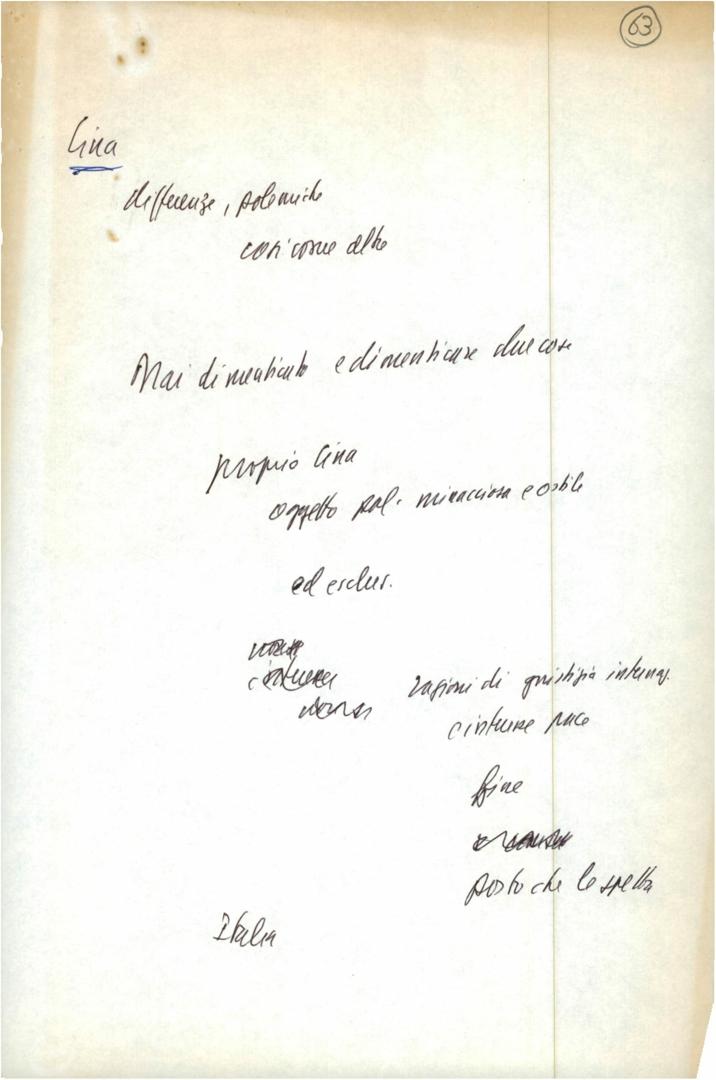 63
Cina
differenze, polemiche
così come altre
Mai dimenticato e dimenticare due cose
proprio Cina
oggetto pol. minacciosa e ostile
ed esclus.
ragioni di giustizia internaz.
e interesse pace
fine
posto che le spetta
Italia